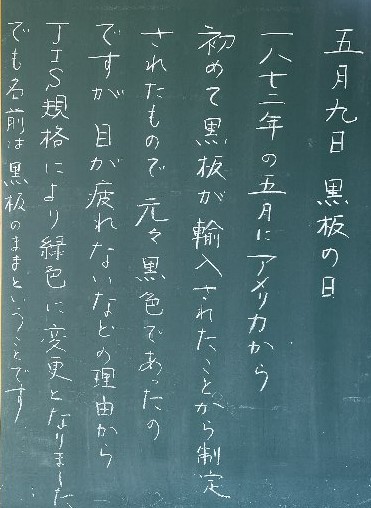 五月九日 黒板の日
一八七二年の五月にアメリカから
初めて黒板が輸入されたことから制定
されたもので 元々黒色であったの
ですが 目が疲れないなどの理由から
JIS規格により緑色に変更となりました
でも名前は黒板のままということです